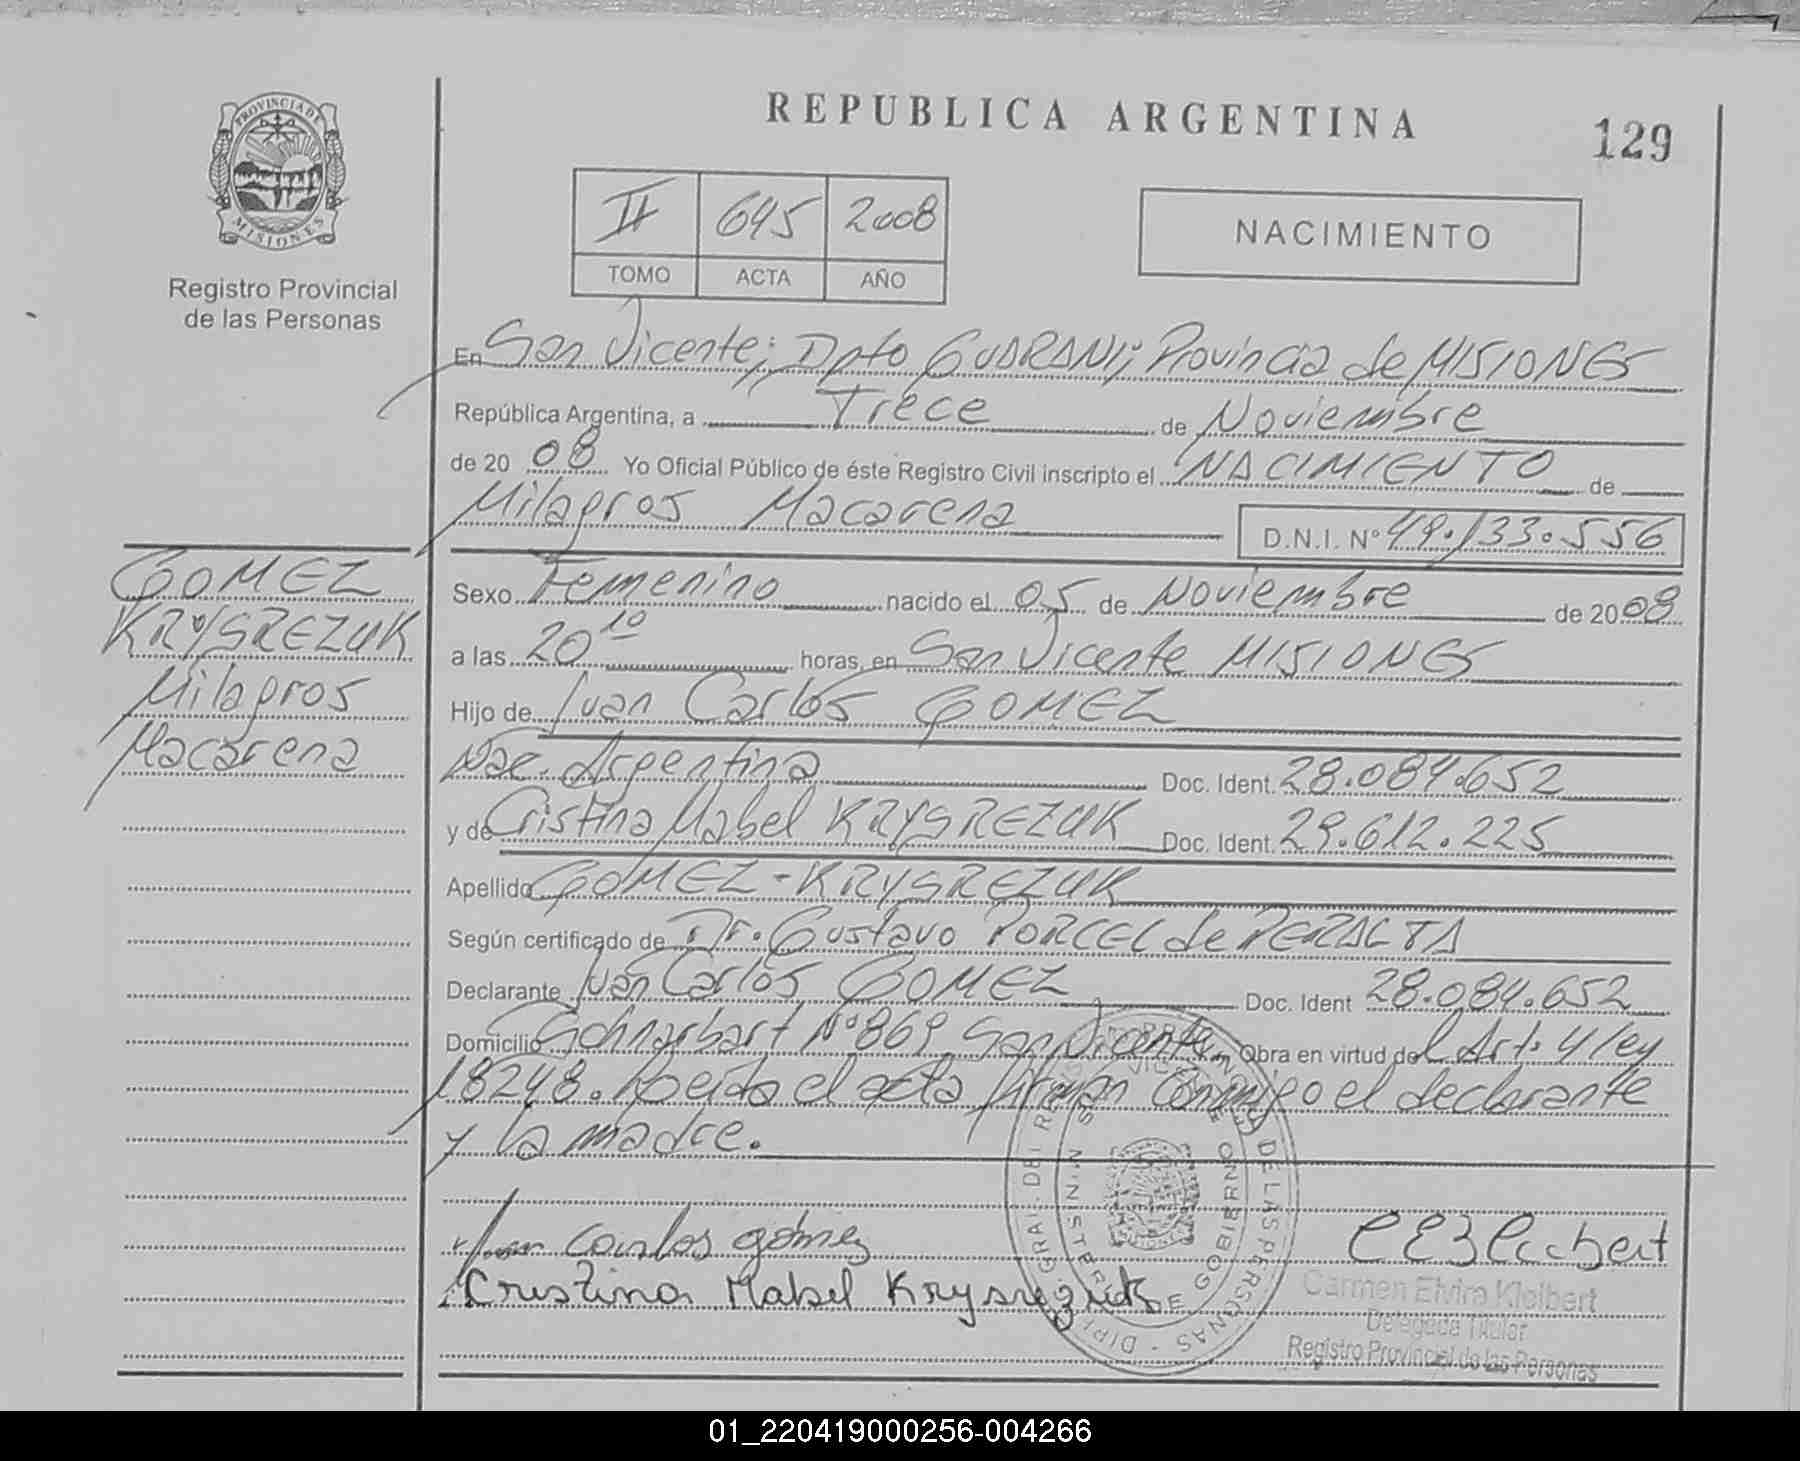 REPUBLICA ARGENTINA
129
PROVINCIA DE
MISIONES
Registro Provincial
de las Personas
II 645 2008
TOMO ACTA AÑO
NACIMIENTO
En San Vicente; Dpto GUARANI; Provincia de MISIONES
República Argentina, a Trece de Noviembre
de 20 08 Yo Oficial Público de éste Registro Civil inscripto el NACIMIENTO de
Milagros Macarena D.N.I. Nº 49.133.556
GOMEZ
KRYSREZUK
Milagros
Macarena
Sexo Femenino nacido el 05 de Noviembre de 2008
a las 20 10 horas, en San Vicente MISIONES
Hijo de Juan Carlos GOMEZ
Nac. Argentina Doc. Ident. 28.084.652
y de Cristina Mabel KRYSREZUK Doc. Ident. 29.612.225
Apellido GOMEZ - KRYSREZUK
Según certificado de Dr. Gustavo PORCEL de PERALTA
Declarante Juan Carlos GOMEZ Doc. Ident 28.084.652
Domicilio Schnarbart Nº 869 San Vicente Obra en virtud del Art. 4 ley
18248. Leída el acta firman conmigo el declarante
y la madre.
Juan Carlos gómez
Cristina Mabel Krysrezuk
Carmen Elvira Kleibert
Delegada Titular
Registro Provincial de las Personas
01_220419000256-004266